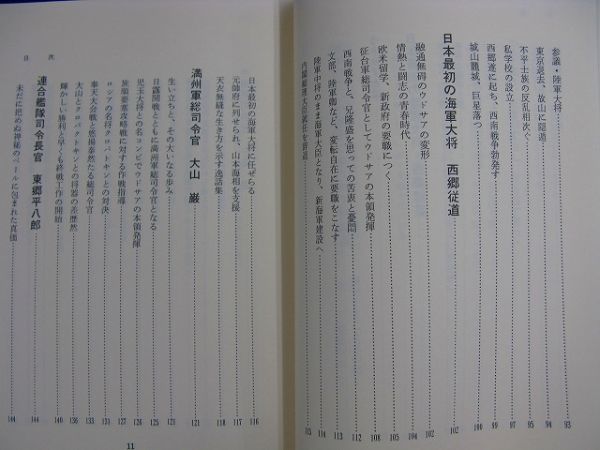 参議・陸軍大将 93
東京退去、故山に隠遁 94
不平士族の反乱相次ぐ 94
私学校の設立 95
西郷遂に起ち、西南戦争勃発す 97
城山籠城、巨星落つ 99
日本最初の海軍大将 西郷従道 102
融通無碍のウドサアの変形 102
情熱と闘志の青春時代 104
欧米留学、新政府の要職につく 105
征台軍総司令官としてウドサアの本領発揮 108
西南戦争と、兄隆盛を思っての苦衷と憂悶 112
文部、陸軍卿など、変転自在に要職をこなす
陸軍中将のまま海軍大臣となり、新海軍建設へ 114
内閣総理大臣就任を辞退 115
目次
日本最初の海軍大将に任ぜらる 116
元帥府に列せられ、山本海相を支援 117
天衣無縫な生き方を示す逸話集 118
満州軍総司令官 大山 巌 121
生い立ちと、その大いなる歩み 121
日露開戦とともに満洲軍総司令官となる 125
児玉大将との名コンビでウドサアの本領発揮 126
旅順要塞攻略戦に対する作戦指導 127
ロシアの名将クロパトキンとの対決 131
奉天大会戦と悠揚泰然たる総司令官 133
大山とクロパトキンとの将器の差歴然 136
輝かしい勝利と早くも終戦工作の開始 140
連合艦隊司令長官 東郷平八郎 144
未だに把めぬ神秘のベールに包まれた真価 144
11